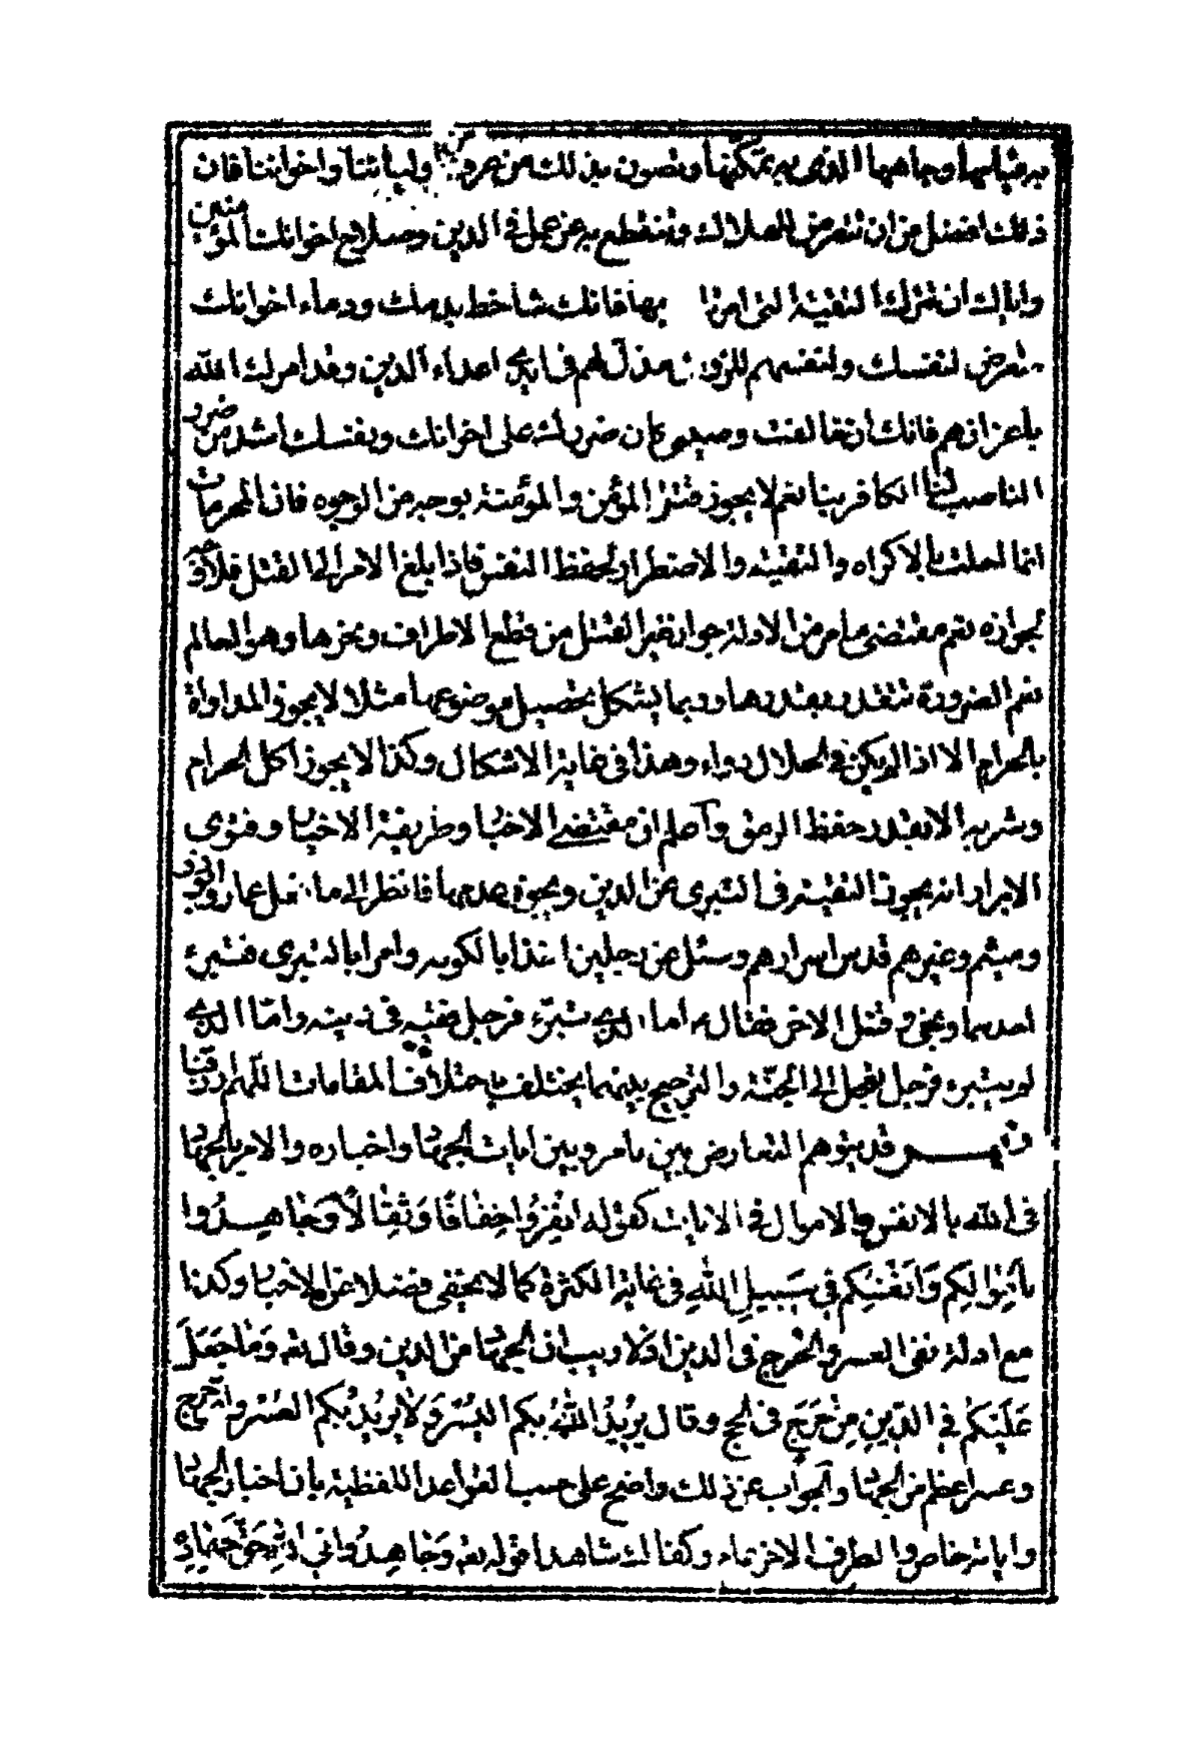 به قيامها وجاهها الذى به تمكنها وتصون بذلك من عرف من اوليائنا واخواننا فان
ذلك افضل من ان تتعرض للهلاك وتنقطع به عن عمل فى الدين وصلاح اخوانك المؤمنين
واياك ان تترك التقية التى امرتك بها فانك شاحط بدمك ودماء اخوانك
متعرض لنفسك ولنفسهم للزوال مذل لهم فى ايدى اعداء الدين وقد امرك الله
باعزازهم فانك ان خالفت وصيتى كان ضررك على اخوانك ونفسك اشد من ضرر
الناصب لنا الكافر بنا نعم لا يجوز قتل المؤمن والمؤمنة بوجه من الوجوه فان المحرمات
انما احلت بالاكراه والتقية والاضطرار لحفظ النفس فاذا بلغ الامر الى القتل فلا وجه
لجوازه نعم مقتضى ما مر من الادلة جواز غير القتل من قطع الاطراف ونحوها وهو العالم
نعم الضرورة تتقدر بقدرها وربما يشكل تحصيل موضوعها مثلا لا يجوز المداواة
بالحرام الا اذا لم يكن فى الحلال دواء وهذا فى غاية الاشكال وكذا لا يجوز اكل الحرام
وشربه الا بقدر حفظ الرمق واعلم ان مقتضى الاخبار وطريقة الاخيار وفتوى
الابرار انه يجوز التقية فى التبرى عن الدين ويجوز عدمها فانظر الى ما فعل عمار وابوذر
وميثم وغيرهم قدس اسرارهم وسئل عن رجلين اخذا بالكوفه وامرا بالتبرى فتبرئ
احدهما ونجى وقتل الاخر فقال ع اما الذى تبرّء فرجل فقيه فى دينه وامّا الذى
لم يتبرء فرجل تعجل الى الجنّة والترجيح بينهما يختلف باختلاف المقامات اللّهم ارزقنا
قد يتوهم التعارض بين ما مر وبين ايات الجهاد واخباره والامر بالجهاد
فى الله بالانفس والاموال فى الايات كقوله انْفِرُوا خِفافًا وَثِقالًا وَجاهِدُوا
بِأَمْوالِكُم وَاَنْفُسِكُم فى سَبيلِ اللّهِ فى غاية الكثرة كما لا يخفى فضلا عن الاخبار وكذا
مع ادلة نفى العسر والحرج فى الدين اذ لا ريب ان الجهاد من الدين وقال تعه وَما جَعَلَ
عَلَيْكُم فى الدّينِ مِنْ حَرَجٍ فى الحج وقال يُريدُ اللّهُ بِكُم اليُسْرَ وَلا يُريدُ بِكُم العُسْر واى حرج
وعسر اعظم من الجهاد والجواب عن ذلك واضح على حسب القواعد اللفظية بان اخبار الجهاد
واياته خاص والطرف الاخر عام وكفا لك شاهدا قوله تعه وَجاهِدُوا فى اللهِ حَقَّ جِهادِهِ